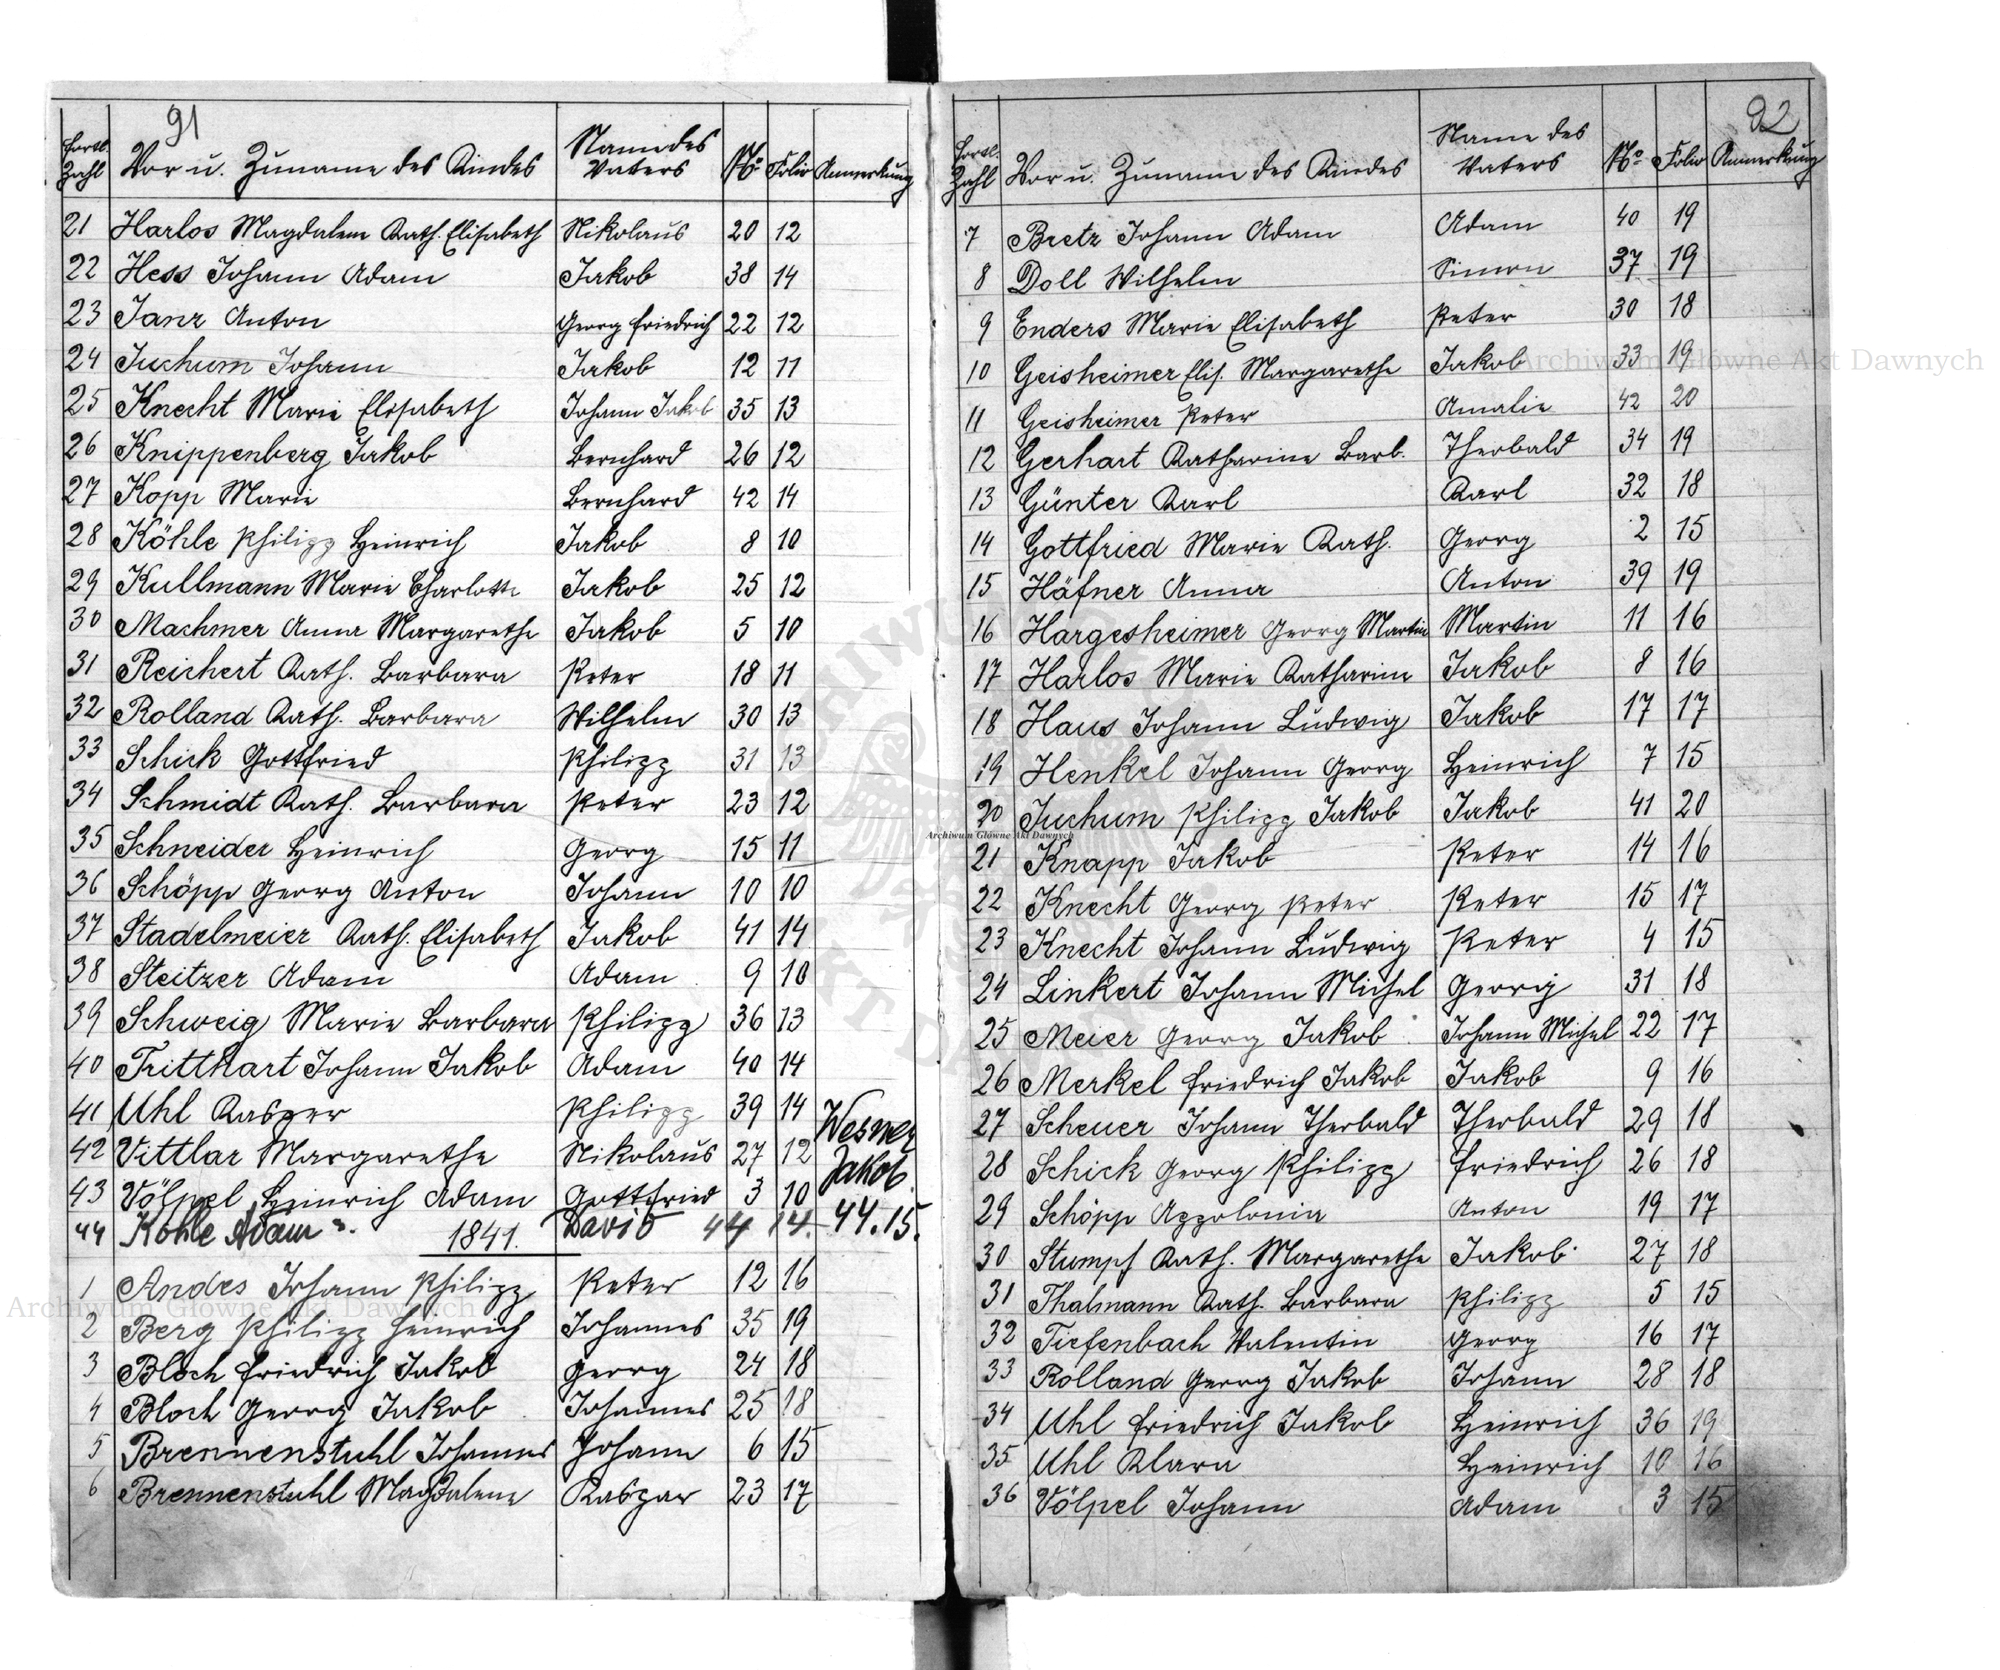 91
Fortl. Zahl Vor u. Zuname des Kindes Name des Vaters No Folio Anmerkung
21 Harlos Magdalena Kath. Elisabeth Nikolaus 20 12
22 Hess Johann Adam Jakob 38 14
23 Janz Anton Georg Friedrich 22 12
24 Juchum Johann Jakob 12 11
25 Knecht Marie Elisabeth Johann Jakob 35 13
26 Knippenberg Jakob Bernhard 26 12
27 Kopp Marie Bernhard 42 14
28 Köhle Philipp Heinrich Jakob 8 10
29 Kullmann Marie Charlotte Jakob 25 12
30 Machmer Anna Margarethe Jakob 5 10
31 Reichert Kath. Barbara Peter 18 11
32 Rolland Kath. Barbara Wilhelm 30 13
33 Schick Gottfried Philipp 31 13
34 Schmidt Kath. Barbara Peter 23 12
35 Schneider Heinrich Georg 15 11
36 Schöpp Georg Anton Johann 10 10
37 Stadelmeier Kath. Elisabeth Jakob 41 14
38 Steitzer Adam Adam 9 10
39 Schweig Marie Barbara Philipp 36 13
40 Tritthart Johann Jakob Adam 40 14
41 Uhl Kasper Philipp 39 14
42 Vittlar Margarethe Nikolaus 27 12 Wesner
43 Völpel Heinrich Adam Gottfried 3 10 Jakob
44 Köhle Adam David 44 14. 44.15.
1841.
1 Andres Johann Philipp Peter 12 16
2 Berg Philipp Heinrich Johannes 35 19
3 Bloch Friedrich Jakob Georg 24 18
4 Bloch Georg Jakob Johannes 25 18
5 Brennenstuhl Johannes Johann 6 15
6 Brennenstuhl Magdalena Kaspar 23 17
92
Fortl. Zahl Vor u. Zuname des Kindes Name des Vaters No Folio Anmerkung
7 Bretz Johann Adam Adam 40 19
8 Doll Wilhelm Simon 37 19
9 Enders Marie Elisabeth Peter 30 18
10 Geisheimer Elis. Margarethe Jakob 33 19
11 Geisheimer Peter Amalie 42 20
12 Gerhart Katharina Barb. Theobald 34 19
13 Günter Karl Karl 32 18
14 Gottfried Marie Kath. Georg 2 15
15 Häfner Anna Anton 39 19
16 Hargesheimer Georg Martin Martin 11 16
17 Harlos Marie Katharina Jakob 8 16
18 Haus Johann Ludwig Jakob 17 17
19 Henkel Johann Georg Heinrich 7 15
20 Juchum Philipp Jakob Jakob 41 20
21 Knapp Jakob Peter 14 16
22 Knecht Georg Peter Peter 15 17
23 Knecht Johann Ludwig Peter 4 15
24 Linkert Johann Michel Georg 31 18
25 Meier Georg Jakob Johann Michel 22 17
26 Merkel Friedrich Jakob Jakob 9 16
27 Scheuer Johann Theobald Theobald 29 18
28 Schick Georg Philipp Friedrich 26 18
29 Schöpp Appolonia Anton 19 17
30 Stumpf Kath. Margarethe Jakob 27 18
31 Thalmann Kath. Barbara Philipp 5 15
32 Tiefenbach Valentin Georg 16 17
33 Rolland Georg Jakob Johann 28 18
34 Uhl Friedrich Jakob Heinrich 36 19
35 Uhl Klara Heinrich 10 16
36 Völpel Johann Adam 3 15
Archiwum Główne Akt Dawnych
Archiwum Główne Akt Dawnych
Archiwum Główne Akt Dawnych